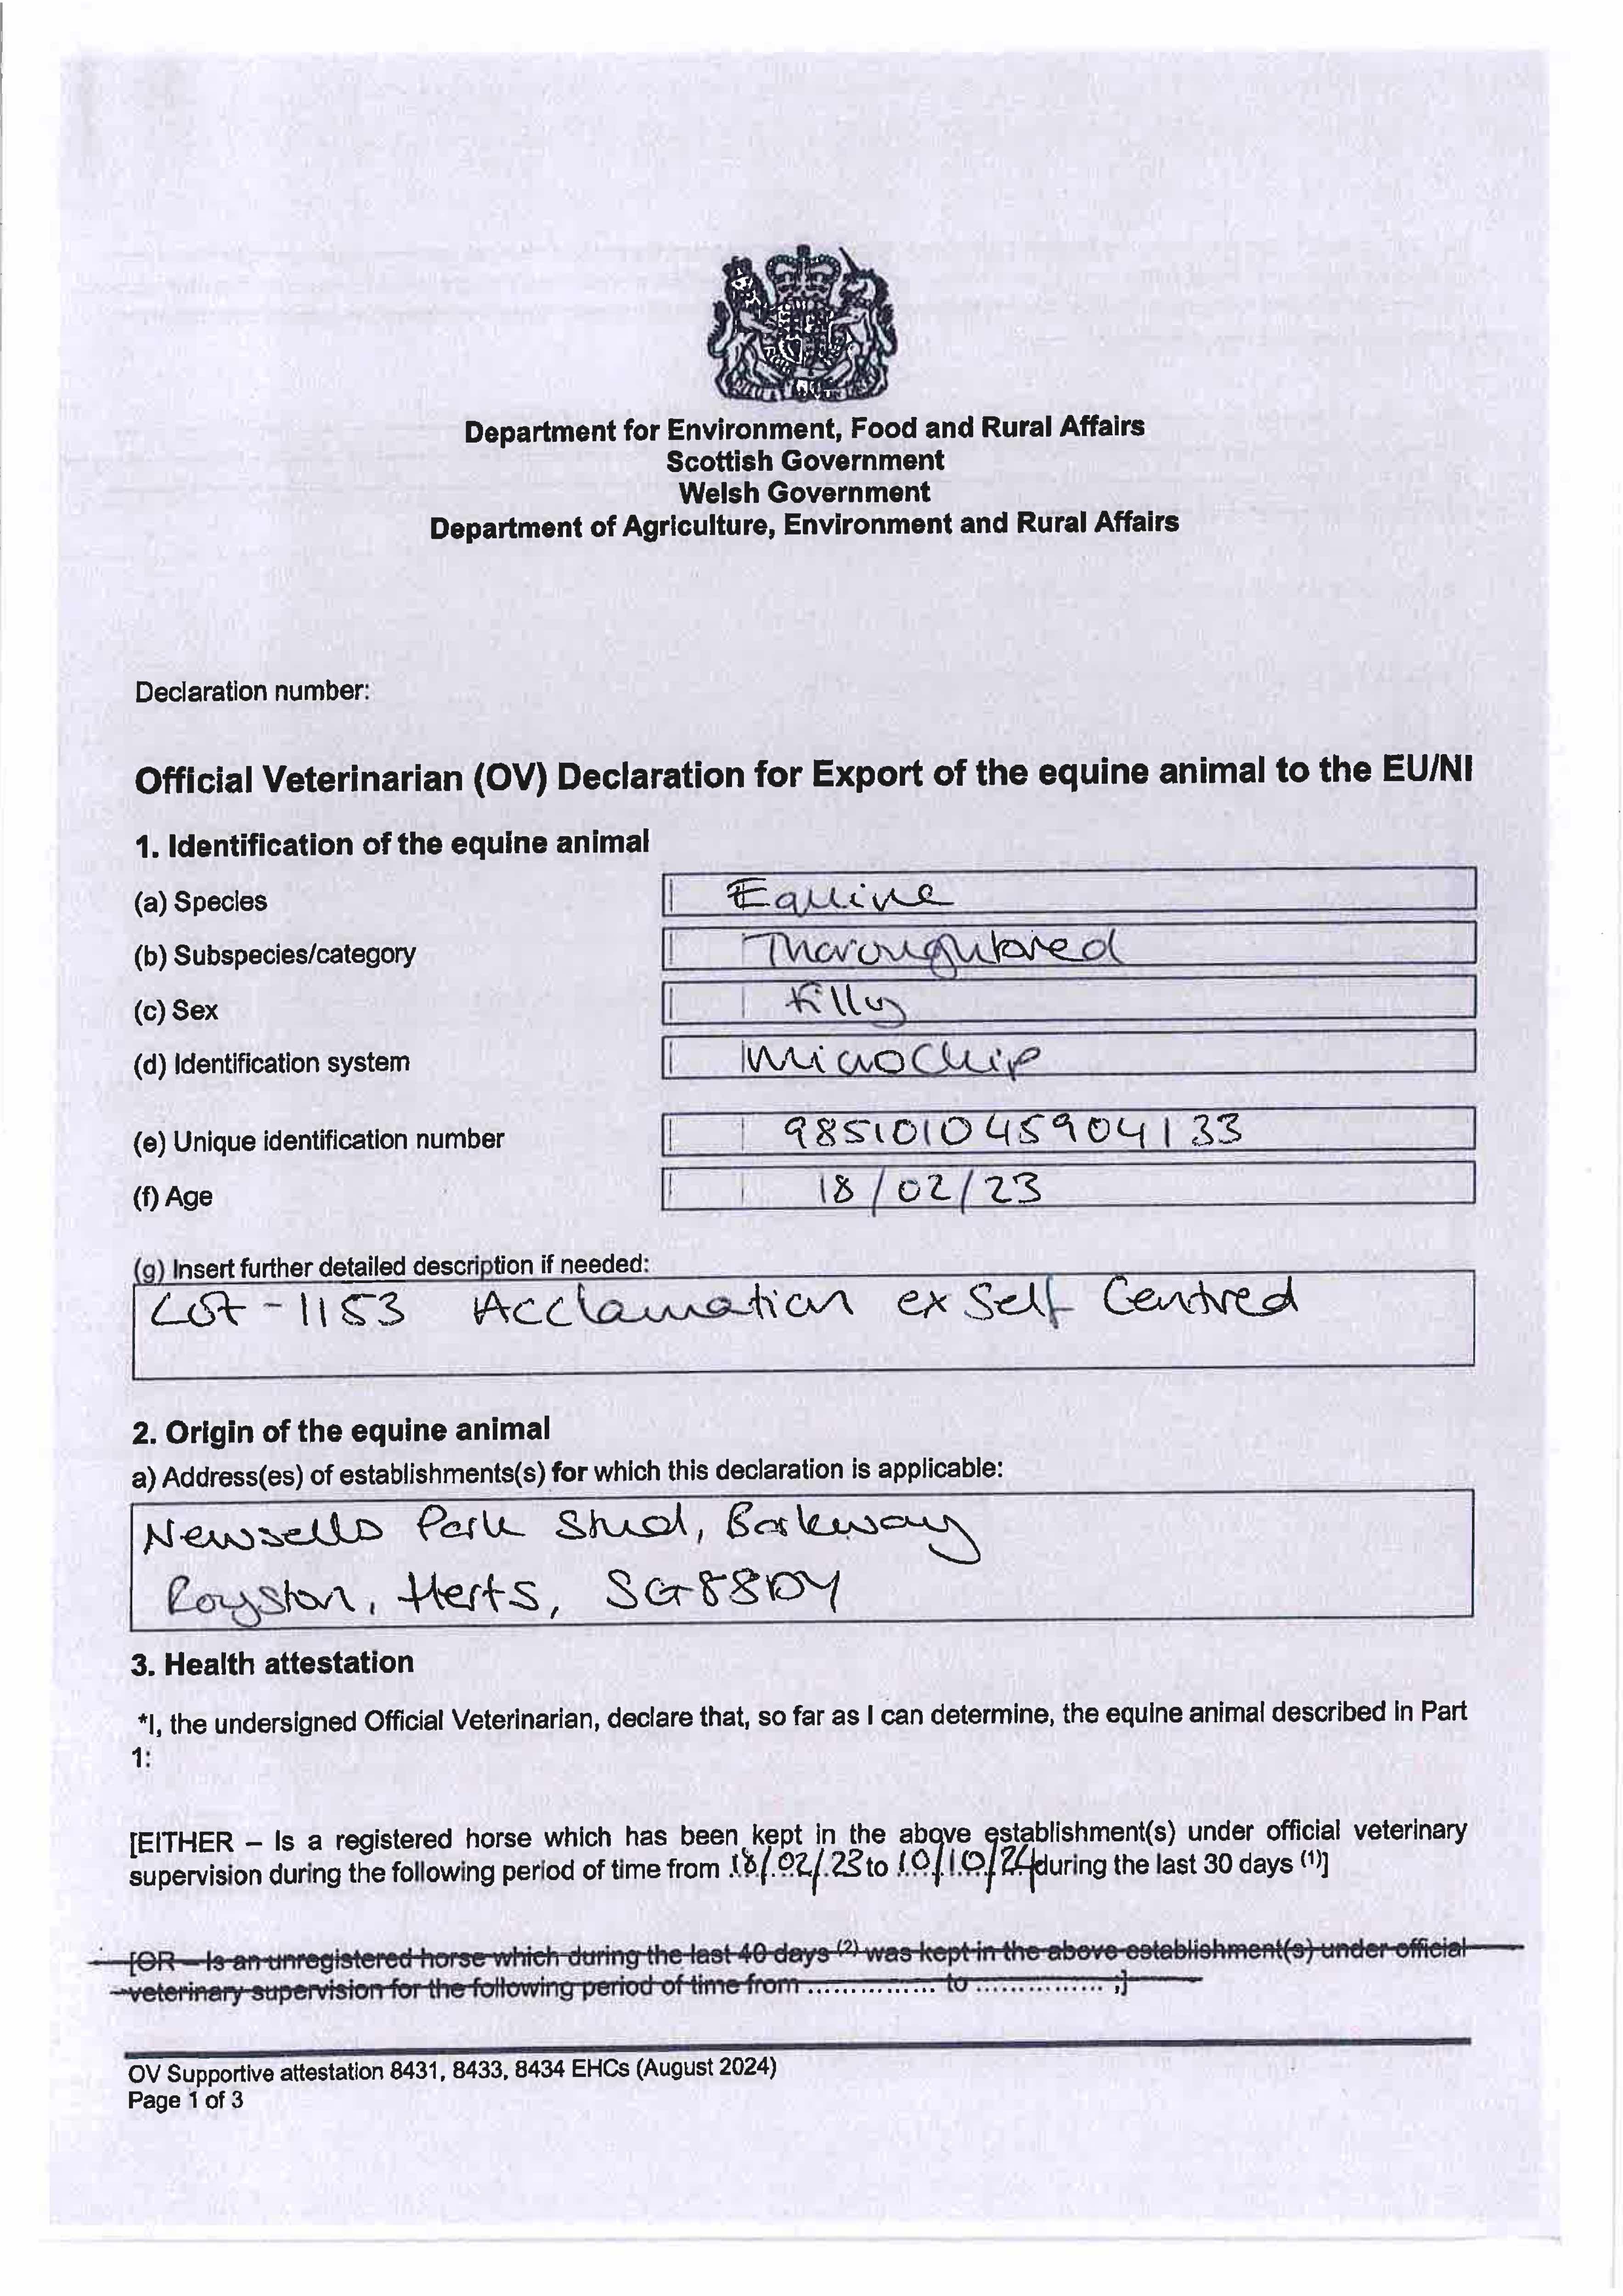 Department for Environment, Food and Rural Affairs
Scottish Government
Welsh Government
Department of Agriculture, Environment and Rural Affairs
Declaration number:
Official Veterinarian (OV) Declaration for Export of the equine animal to the EU/NI
1. Identification of the equine animal
(a) Species Equine
(b) Subspecies/category Thoroughbred
(c) Sex Filly
(d) Identification system Microchip
(e) Unique identification number 985101045904133
(f) Age 18/02/23
(g) Insert further detailed description if needed:
Lot - 1153 Acclamation ex Self Centred
2. Origin of the equine animal
a) Address(es) of establishments(s) for which this declaration is applicable:
Newsells Park Stud, Barkway
Royston, Herts, SG88DY
3. Health attestation
*I, the undersigned Official Veterinarian, declare that, so far as I can determine, the equine animal described in Part
1:
[EITHER – Is a registered horse which has been kept in the above establishment(s) under official veterinary
supervision during the following period of time from 18/02/23 to 10/10/24 during the last 30 days (1)]
[OR – Is an unregistered horse which during the last 40 days (2) was kept in the above establishment(s) under official
veterinary supervision for the following period of time from ................ to ................ ;]
OV Supportive attestation 8431, 8433, 8434 EHCs (August 2024)
Page 1 of 3